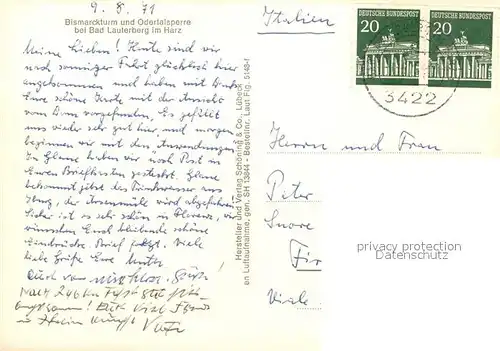 9. 8. 71
Bismarckturm und Odertalsperre
bei Bad Lauterberg im Harz
Meine Lieben! Heute sind wir
nach sonniger Fahrt glücklich hier
angekommen und haben mit Dank
Eure schöne Karte mit der Ansicht
vom Dom vorgefunden. Es gefällt
uns wieder sehr gut hier und morgen
beginnen wir mit den Anwendungen.
In haben wir noch Post in
Euren Briefkasten gesteckt.
bekommt jetzt das Trinkwasser aus
der wird abgefahren.
Sicher ist es sehr schön in Florenz, wir
wünschen Euch bleibende schöne
Eindrücke. Brief folgt. Viele
liebe Grüße Eure Mutter
Auch von
Nach 246 km Fahrt gut hier
angekommen! Euch viel
Vater
Hersteller und Verlag Schöning & Co., Lübeck
en Luftaufnahme, gen. SH 13844 - Bestellnr. Laut Fig. 5148-f
Italien
DEUTSCHE BUNDESPOST
20
DEUTSCHE BUNDESPOST
20
3422
Herrn und Frau
Peter
Snore
Fir
Viale
privacy protection
Datenschutz